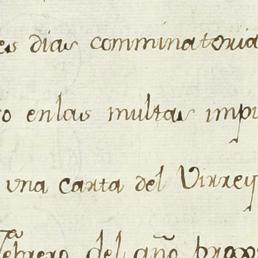 es dias comminatoria
o enlas multas impu
una carta del Virrey
febrero del año prox